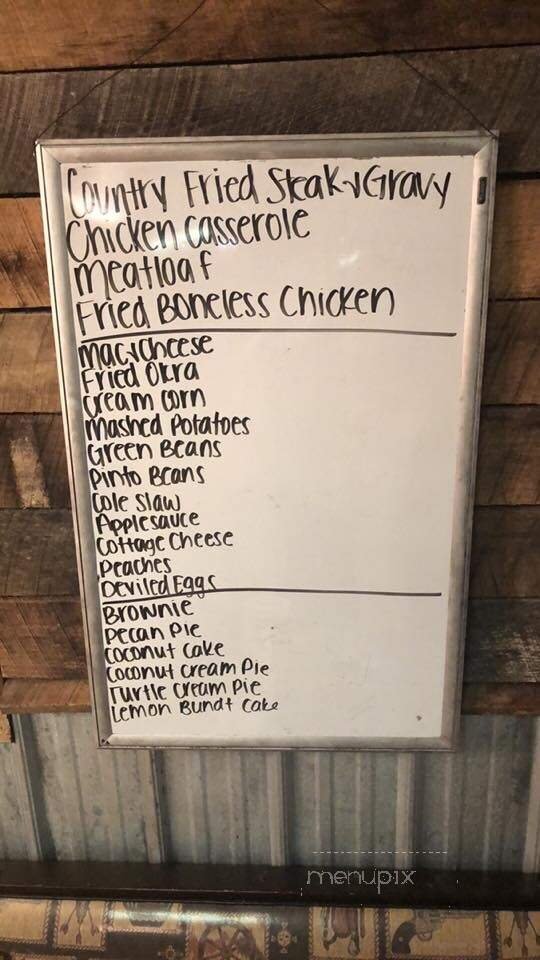 Country Fried Steak & Gravy
Chicken Casserole
Meatloaf
Fried Boneless Chicken
Mac & Cheese
Fried Okra
Cream Corn
Mashed Potatoes
Green Beans
Pinto Beans
Cole Slaw
Applesauce
Cottage Cheese
Peaches
Deviled Eggs
Brownie
Pecan Pie
Coconut Cake
Coconut Cream Pie
Turtle Cream Pie
Lemon Bundt Cake
menupix